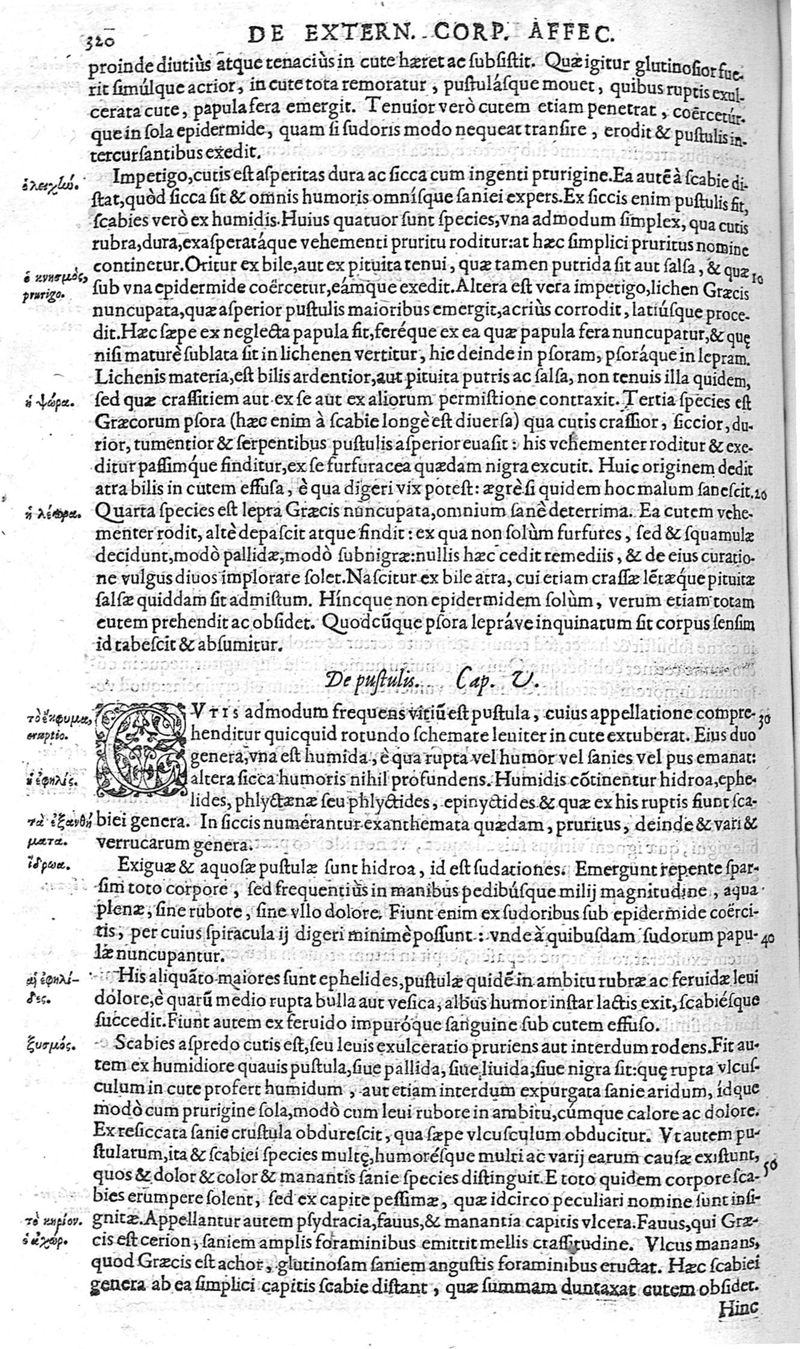 320
DE EXTERN. CORP. AFFEC.
proinde diutiùs atque tenacius in cute hæret ac subsistit. Quæ igitur glutinosior fue-
rit simúlque acrior, in cute tota remoratur, pustulásque mouet, quibus ruptis exul-
cerata cute, papula fera emergit. Tenuior verò cutem etiam penetrat, coërcetúr-
que in sola epidermide, quam si sudoris modo nequeat transire, erodit & pustulis in-
tercursantibus exedit.
ὁ λειχὴν.
Impetigo, cutis est asperitas dura ac sicca cum ingenti prurigine. Ea autē à scabie di-
stat, quòd sicca sit & omnis humoris omnísque saniei expers. Ex siccis enim pustulis fit,
scabies verò ex humidis. Huius quatuor sunt species, vna admodum simplex, qua cutis
rubra, dura, exasperatáque vehementi pruritu roditur: at hæc simplici pruritus nomine
ὁ κνησμὸς,
prurigo.
continetur. Oritur ex bile, aut ex pituita tenui, quæ tamen putrida sit aut salsa, & quæ 10
sub vna epidermide coërcetur, eámque exedit. Altera est vera impetigo, lichen Græcis
nuncupata, quæ asperior pustulis maioribus emergit, acriùs corrodit, latiúsque proce-
dit. Hæc sæpe ex neglecta papula fit, feréque ex ea quæ papula fera nuncupatur, & quę
nisi maturè sublata sit in lichenen vertitur, hic deinde in psoram, psoráque in lepram.
Lichenis materia, est bilis ardentior, aut pituita putris ac salsa, non tenuis illa quidem,
ἡ ψώρα.
sed quæ crassitiem aut ex se aut ex aliorum permistione contraxit. Tertia species est
Græcorum psora (hæc enim à scabie longè est diuersa) qua cutis crassior, siccior, du-
rior, tumentior & serpentibus pustulis asperior euasit: his vehementer roditur & exe-
ditur passimque finditur, ex se furfuracea quædam nigra excutit. Huic originem dedit
atra bilis in cutem effusa, è qua digeri vix potest: ægrè si quidem hoc malum sanescit. 20
ἡ λέπρα.
Quarta species est lepra Græcis nuncupata, omnium sanè deterrima. Ea cutem vehe-
menter rodit, altè depascit atque findit: ex qua non solùm furfures, sed & squamulæ
decidunt, modò pallidæ, modò subnigræ: nullis hæc cedit remediis, & de eius curatio-
ne vulgus diuos implorare solet. Nascitur ex bile atra, cui etiam crassæ lētæque pituitæ
salsæ quiddam sit admistum. Híncque non epidermidem solùm, verum etiam totam
cutem prehendit ac obsidet. Quodcūque psora lepráve inquinatum sit corpus sensim
id tabescit & absumitur.
De pustulis. Cap. V.
τὸ ἔκφυμα,
eruptio.
CVTIS admodum frequens vitiū est pustula, cuius appellatione compre- 30
henditur quicquid rotundo schemate leniter in cute extuberat. Eius duo
genera, vna est humida, è qua rupta vel humor vel sanies vel pus emanat:
ἡ ἐφηλίς.
altera sicca humoris nihil profundens. Humidis cōtinentur hidroa, ephe-
lides, phlyctænæ seu phlyctides, epinyctides & quæ ex his ruptis fiunt sca-
τὰ ἐξανθή
ματα.
biei genera. In siccis numerantur exanthemata quædam, pruritus, deinde & vari &
verrucarum genera.
ἵδρωα.
Exiguæ & aquosæ pustulæ sunt hidroa, id est sudationes. Emergunt repente spar-
sim toto corpore, sed frequentiùs in manibus pedibúsque milij magnitudine, aqua
plenæ, sine rubore, sine vllo dolore. Fiunt enim ex sudoribus sub epidermide coërci-
tis, per cuius spiracula ij digeri minimè possunt: vnde à quibusdam sudorum papu- 40
læ nuncupantur.
αἱ ἐφηλί-
δες.
His aliquāto maiores sunt ephelides, pustulæ quidē in ambitu rubræ ac feruidæ leui
dolore, è quarū medio rupta bulla aut vesica, albus humor instar lactis exit, scabiésque
succedit. Fiunt autem ex feruido impuróque sanguine sub cutem effuso.
ξυσμός.
Scabies aspredo cutis est, seu leuis exulceratio pruriens aut interdum rodens. Fit au-
tem ex humidiore quauis pustula, siue pallida, siue liuida, siue nigra sit: quę rupta vlcus-
culum in cute profert humidum, aut etiam interdum expurgata sanie aridum, idque
modò cum prurigine sola, modò cum leui rubore in ambitu, cúmque calore ac dolore.
Ex resiccata sanie crustula obdurescit, qua sæpe vlcusculum obducitur. Vt autem pu-
stularum, ita & scabiei species multę, humorésque multi ac varij earum causæ existunt,
quos & dolor & color & manantis sanie species distinguit. E toto quidem corpore sca- 50
bies erumpere solent, sed ex capite pessimæ, quæ idcirco peculiari nomine sunt insi-
τὸ κηρίον.
gnitæ. Appellantur autem psydracia, fauus, & manantia capitis vlcera. Fauus, qui Græ-
ὁ ἀχώρ.
cis est cerion, saniem amplis foraminibus emittit mellis crassitudine. Vlcus manans,
quod Græcis est achor, glutinosam saniem angustis foraminibus eructat. Hæc scabiei
genera ab ea simplici capitis scabie distant, quæ summam duntaxat cutem obsidet.
Hinc